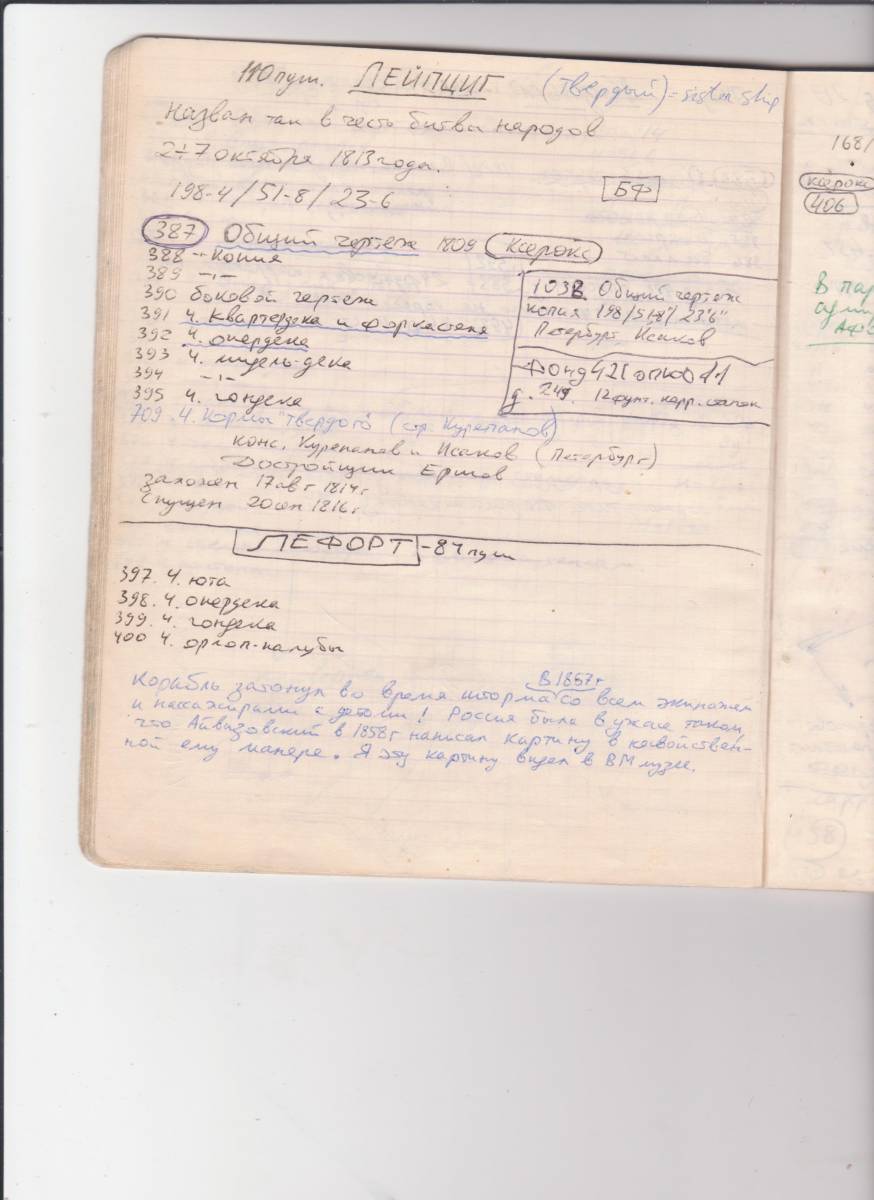 110 пуш. ЛЕЙПЦИГ (Твердый) = sister ship
Назван так в честь битвы народов
2÷7 октября 1813 года.
198-4 / 51-8 / 23-6 БФ
387 Общий чертеж 1809 Ксерокс
388 -"- Копия
389 -"-
390 боковой чертеж
391 Ч. Квартердека и форкастеля
392 Ч. опердека
393 Ч. мидель-дека
394 -"-
395 Ч. гондека
103В Общий чертеж
копия 198/51-8"/23'6"
Петербург, Исаков
Фонд 421 опись 11
д. 249. 12 фунт. карр. станок
709. Ч. Кормы "Твердого" (стр. Курепанов)
конс. Курепанов и Исаков (Петербург)
Достройщик Ершов
заложен 17 авг 1814 г
Спущен 20 сен 1816 г
ЛЕФОРТ - 84 пуш
397. Ч. юта
398. Ч. опердека
399. Ч. гондека
400 Ч. орлоп-палубы
В 1857 г
Корабль затонул во время шторма со всем экипажем
и пассажирами с детьми! Россия была в ужасе таком,
что Айвазовский в 1858 г написал картину в несвойствен-
ной ему манере. Я эту картину видел в ВМ музее.
168/
ксерокс
406
В